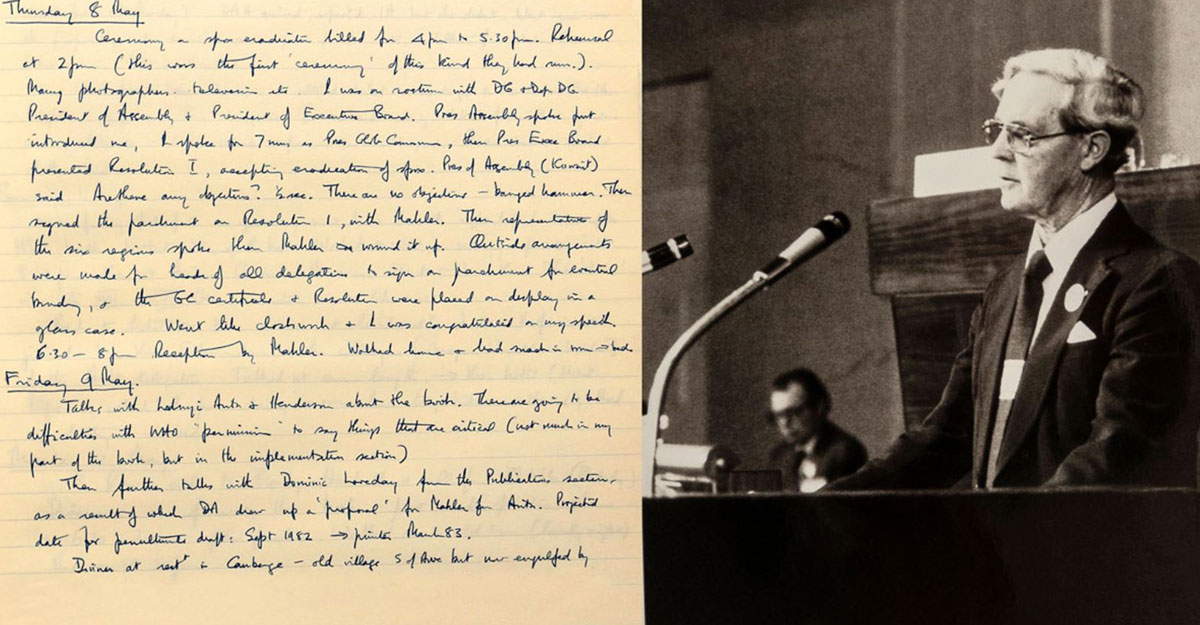 Thursday 8 May
Ceremony on spox eradication billed for 4pm to 5.30pm. Rehearsal
at 2pm (this was the first 'ceremony' of this kind they had run.).
Many photographers television etc. I was on rostrum with DG + Dep DG
President of Assembly + President of Executive Board. Pres Assembly spoke first
introduced me, I spoke for 7 mins as Pres Glob Commn, then Pres Exec Board
presented Resolution I, accepting eradication of spox. Pres of Assembly (Kuwait)
said Are there any objections? There are no objections – banged hammer. Then
signed the parchment on Resolution 1, with Mahler. Then representative of
the six regions spoke then Mahler wound it up. Outside arrangements
were made for heads of all delegations to sign on parchment for eventual
binding, & the GC certificate + Resolution were placed on display in a
glass case. Went like clockwork + I was congratulated on my speech.
6.30 – 8pm Reception by Mahler. Walked home + had snack in room → bed
Friday 9 May.
Talks with Ladnyi Arita + Henderson about the book. There are going to be
difficulties with WHO 'permission' to say things that are critical (not much in my
part of the book, but in the implementation section)
Then further talks with Dominic Loveday from the Publications section,
as a result of which DA drew up a 'proposal' for Mahler for Arita. Projected
date for penultimate draft: Sept 1982 → printer March 83.
Dinner at rest in – old village S of but now engulfed by